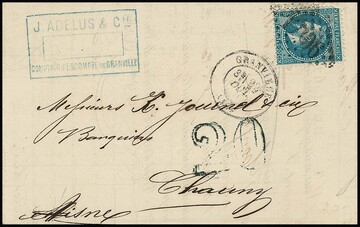 J. ADELUS & Cie
COMPTOIR D'ESCOMPTE DE GRANVILLE
GRANVILLE
Messieurs K. Journel & cie
Banquiers
20
Chauny
Aisne